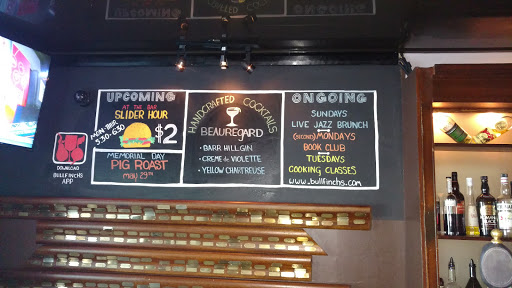 UPCOMING
AT THE BAR
SLIDER HOUR
MON-THUR
3:30-6:30
$2
MEMORIAL DAY
PIG ROAST
MAY 29TH
DOWNLOAD
BULLFINCHS
APP
HANDCRAFTED COCKTAILS
BEAUREGARD
• BARR HILL GIN
• CREME de VIOLETTE
• YELLOW CHARTREUSE
ONGOING
SUNDAYS
LIVE JAZZ BRUNCH
(second) MONDAYS
BOOK CLUB
TUESDAYS
COOKING CLASSES
www.bullfinchs.com